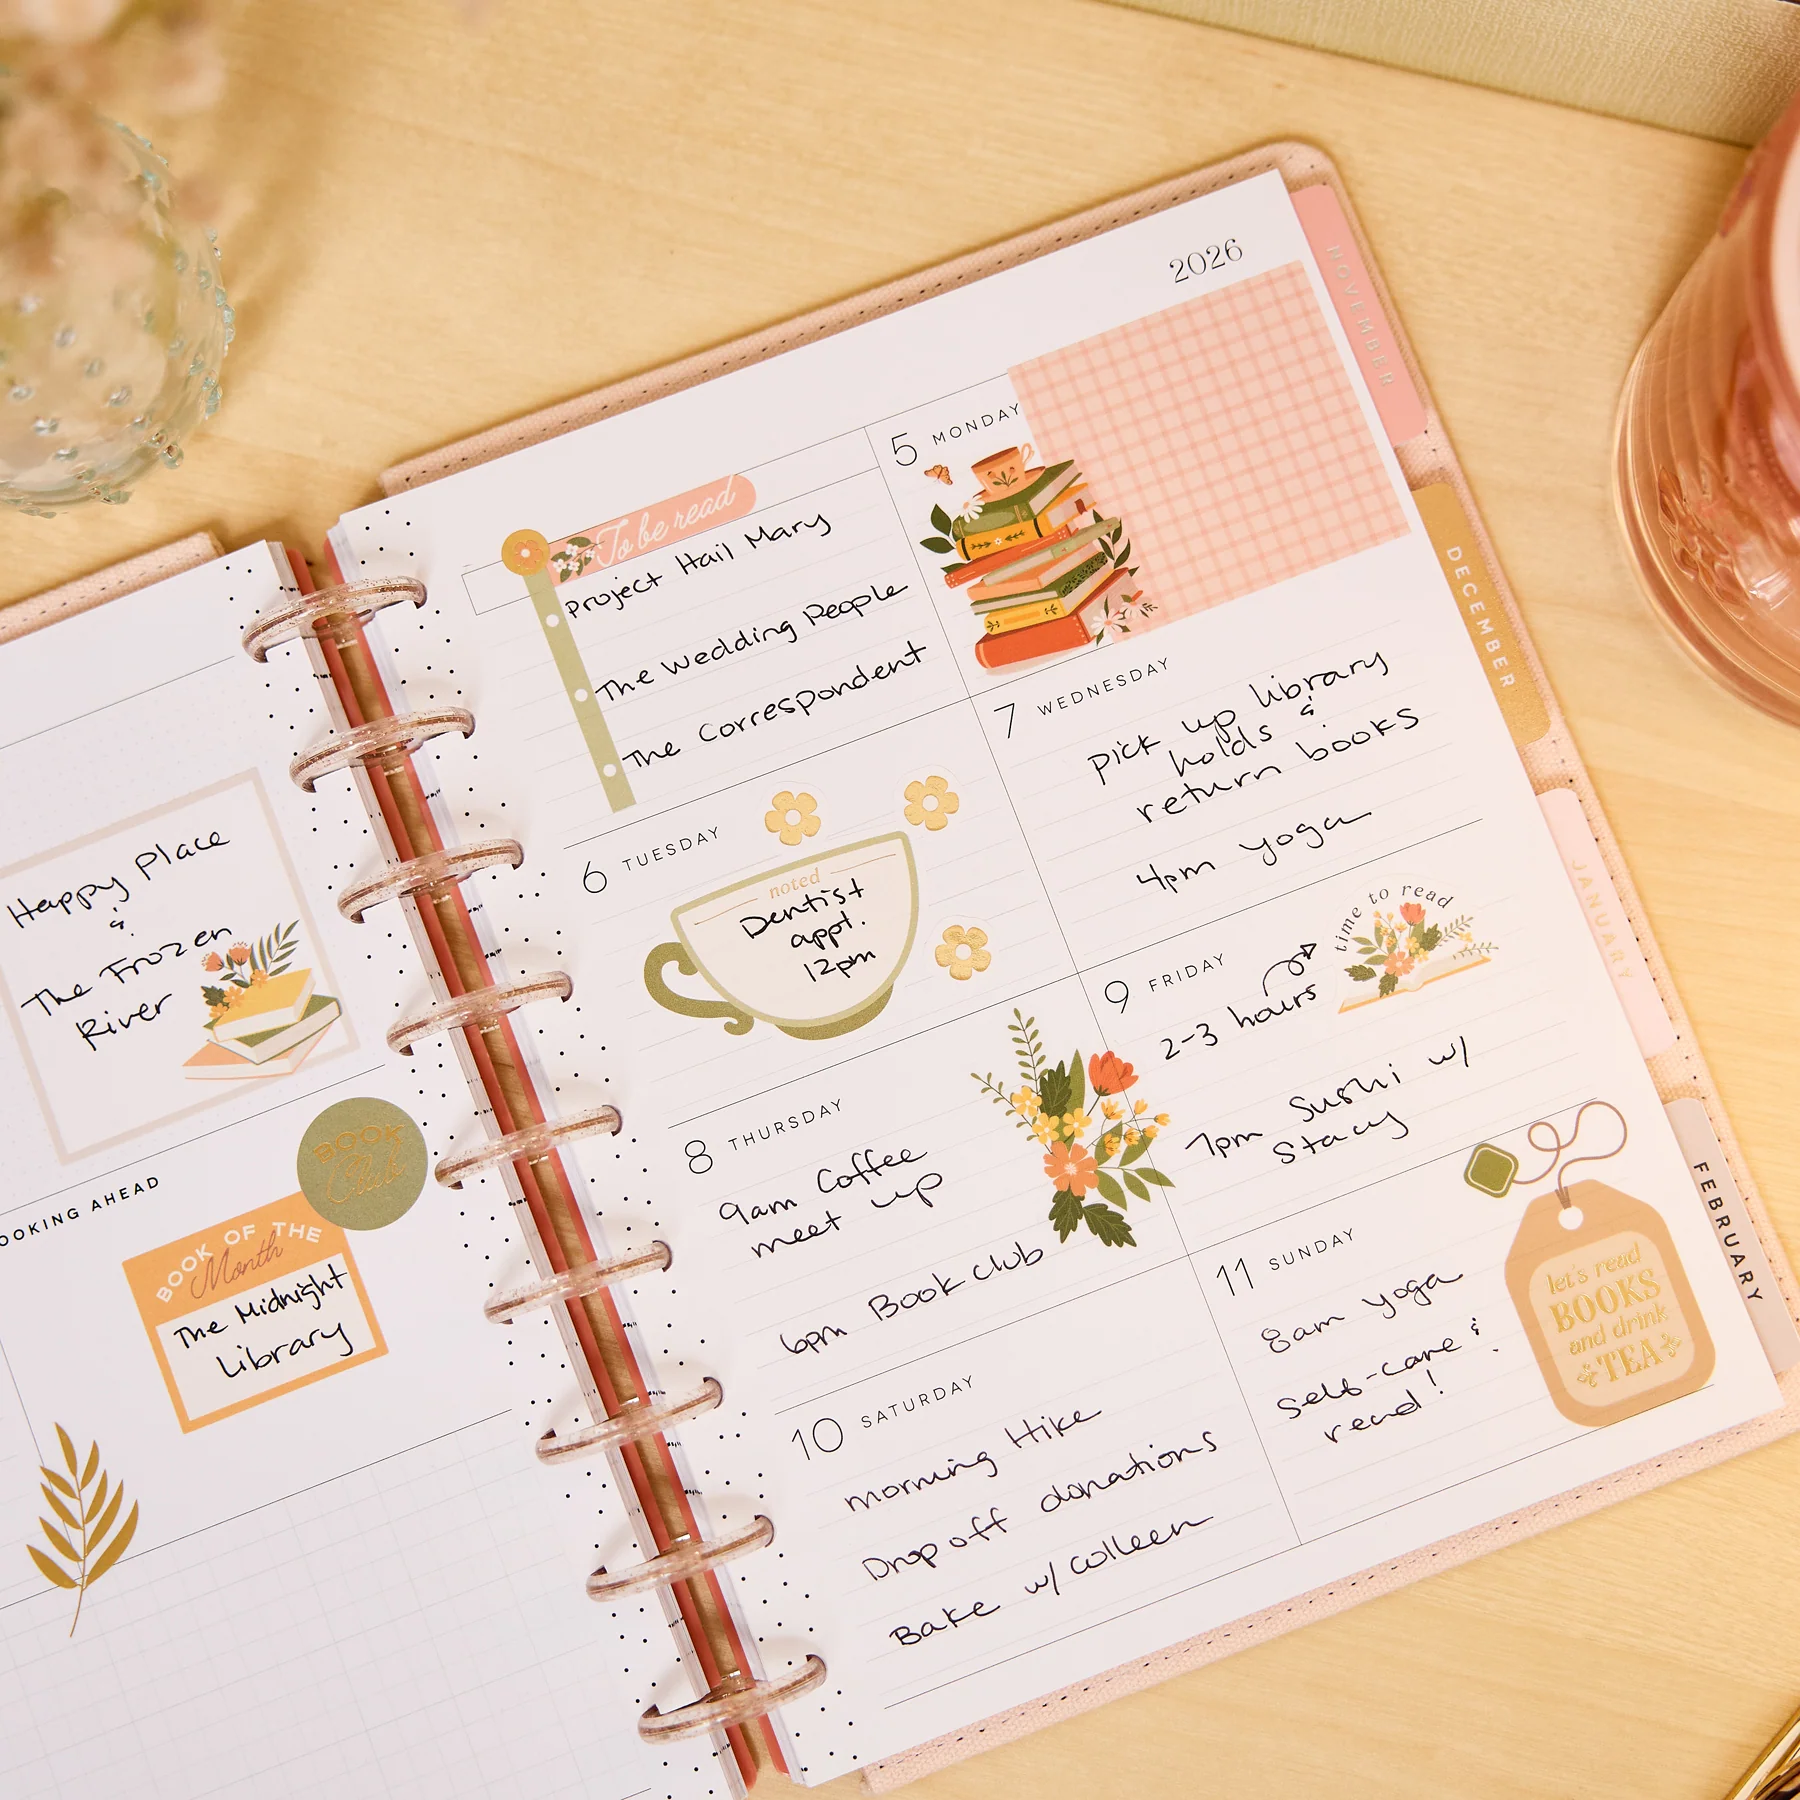 Happy Place
&
The Frozen
River
OOKING AHEAD
BOOK
Club
BOOK OF THE
Month
The Midnight
Library
2026
To be read
Project Hail Mary
The Wedding People
The Correspondent
5 MONDAY
6 TUESDAY
noted
Dentist
appt.
12pm
7 WEDNESDAY
pick up library
holds &
return books
4pm yoga
8 THURSDAY
9am Coffee
meet up
6pm Book club
9 FRIDAY
time to read
2-3 hours
7pm Sushi w/
Stacy
10 SATURDAY
morning Hike
Drop off donations
Bake w/ Colleen
11 SUNDAY
8am yoga
self-care &
read!
let's read
BOOKS
and drink
TEA
NOVEMBER
DECEMBER
JANUARY
FEBRUARY